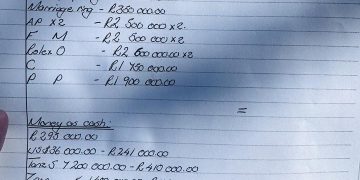 Marriage ring - R350 000.00
AP x2 - R2 500 000 x2.
F M - R2 500 000 x2
Rolex O - R2 600 000.00 x2
C - R1 750 000.00
P P - R1 900 000.00
=
Money as cash:
R295 000.00
US$36 000.00 - R241 000.00
7 200 000.00 - R410 000.00